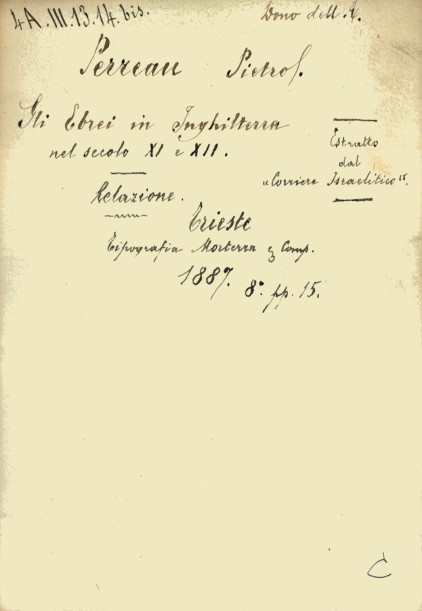 4A.III.13.14.bis.
Dono dell'A.
Perreau Pietro.
Gli Ebrei in Inghilterra
nel secolo XI e XII.
Estratto
dal
"Corriere Israelitico".
Relazione.
Trieste
Tipografia Morterra & Comp.
1887. 8° pp. 15.